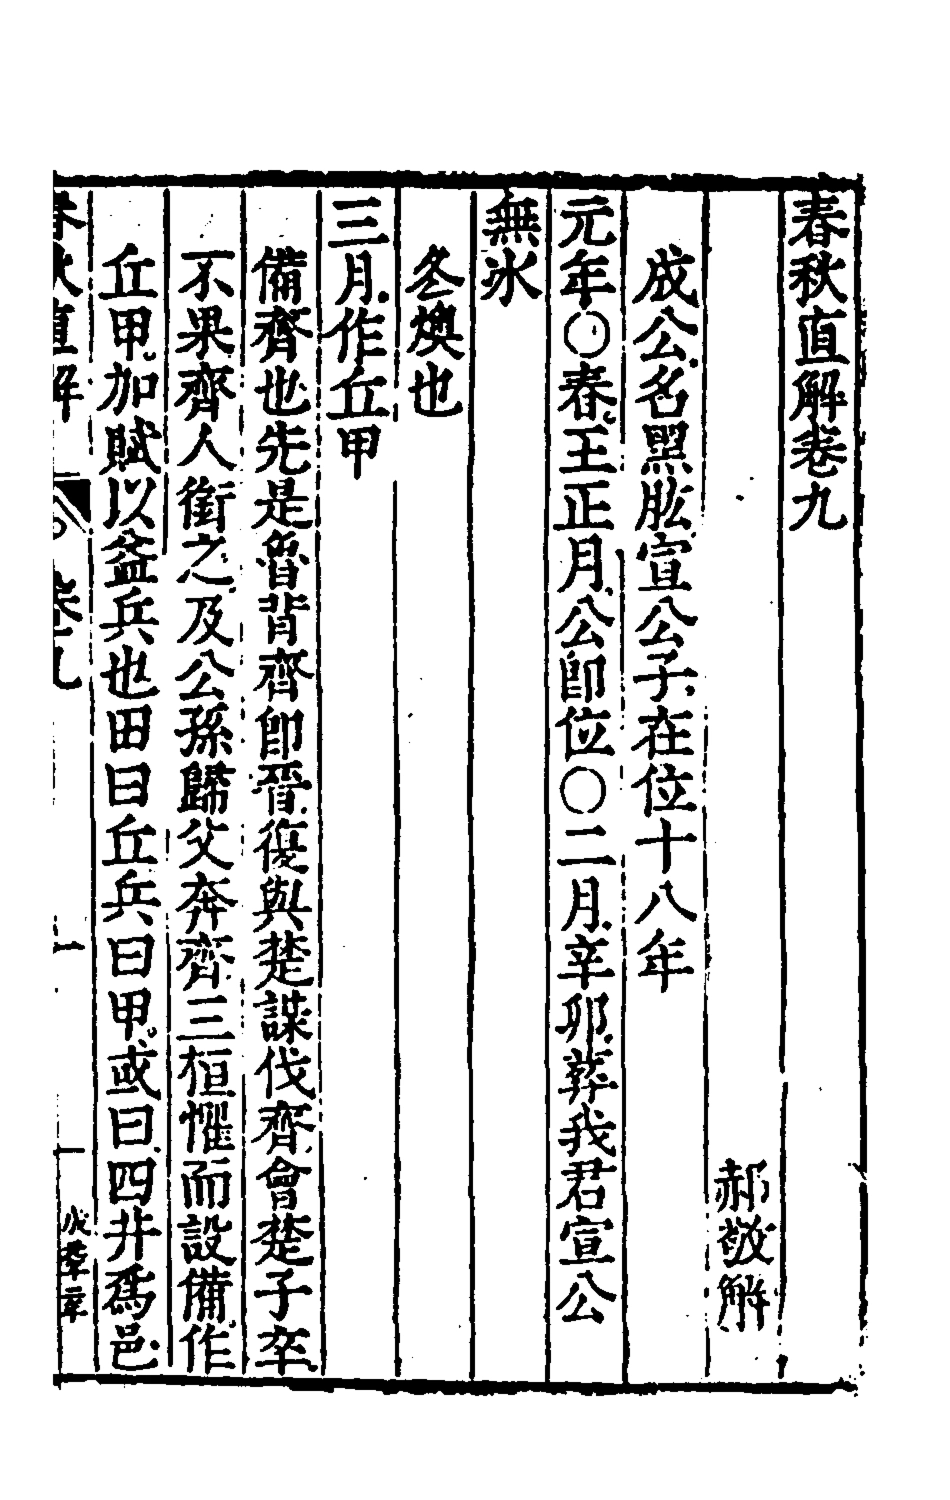 春秋直解卷九
郝敬解
成公名黑肱宣公子在位十八年
元年○春王正月公卽位○二月辛卯葬我君宣公
無氷
冬燠也
三月作丘甲
備齊也先是魯背齊卽晉復與楚謀伐齊會楚子卒
不果齊人銜之及公孫歸父奔齊三桓懼而設備作
丘甲加賦以益兵也田曰丘兵曰甲或曰四井爲邑
春秋直解 卷九 一